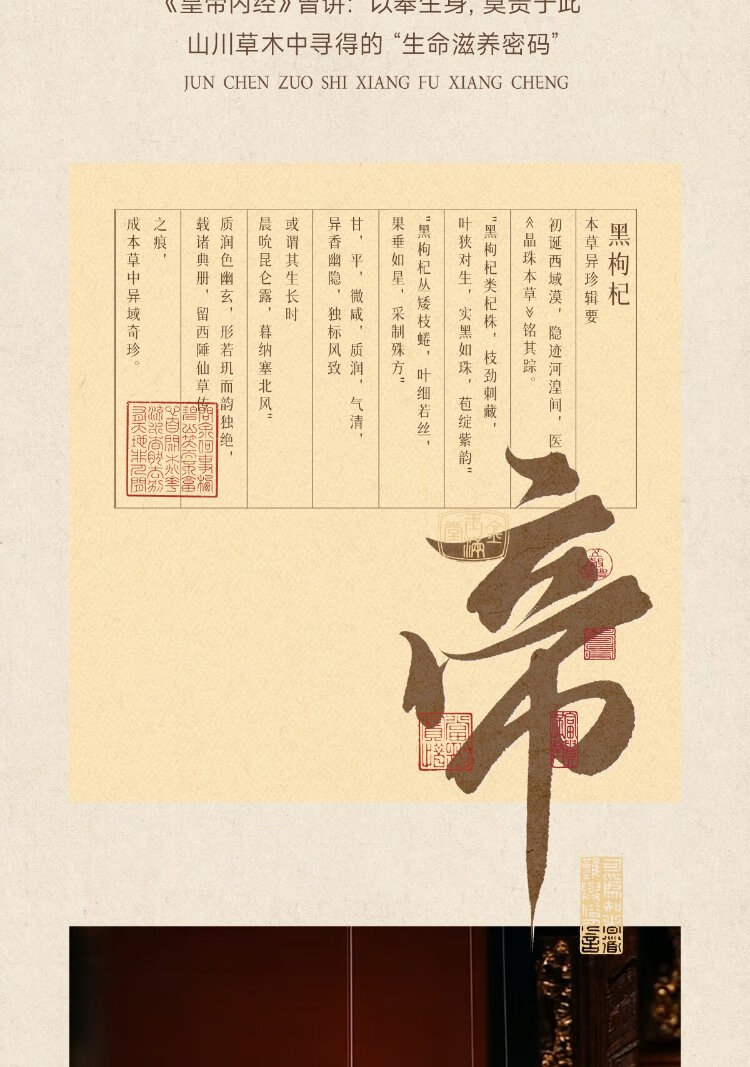 《皇帝内经》曾讲：以奉生身，莫贵于此
山川草木中寻得的“生命滋养密码”
JUN CHEN ZUO SHI XIANG FU XIANG CHENG
黑枸杞
本草异珍辑要
初诞西域漠，隐迹河湟间，医
《晶珠本草》铭其踪。
“黑枸杞类杞株，枝劲刺藏，
叶狭对生，实黑如珠，苞绽紫韵”
“黑枸杞丛矮枝蜷，叶细若丝，
果垂如星，采制殊方”
甘，平，微咸，质润，气清，
异香幽隐，独标风致
或谓其生长时
晨吮昆仑露，暮纳塞北风”
质润色幽玄，形若玑而韵独绝，
载诸典册，留西陲仙草传
之痕，
成本草中异域奇珍。
帝
金玉满堂